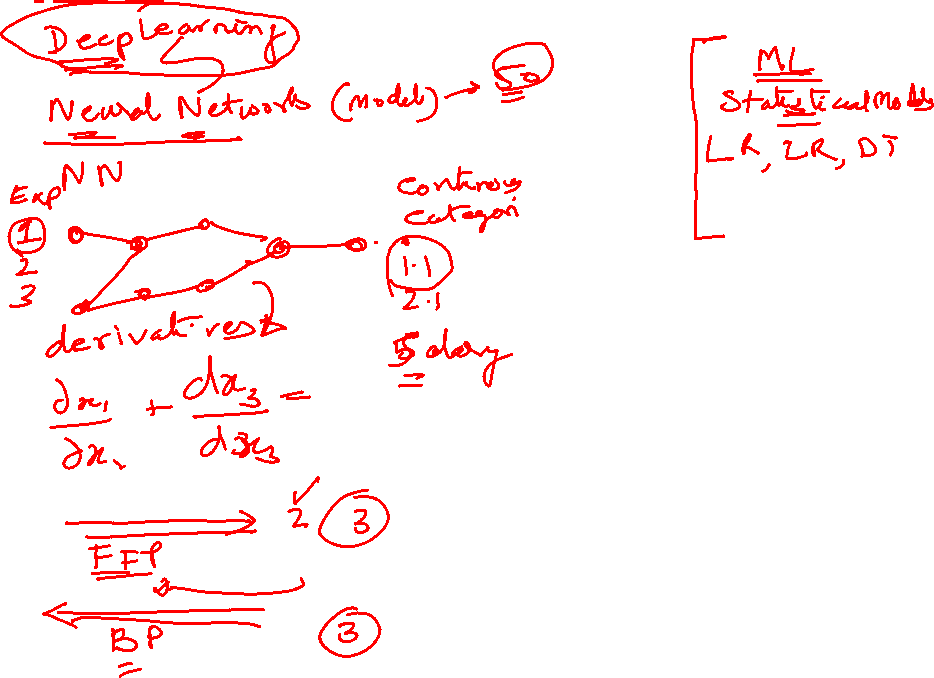 Deep Learning
Neural Networks (Models) → 50
NN
Exp
1
2
3
Continous
Categori
1.1
2.1
derivatives
5 dary
∂x₁/∂x₁ + dx₃/d3x₃ =
2 ✓ 3
FFP
BP
3
ML
Statistical Models
LR, LR, DT